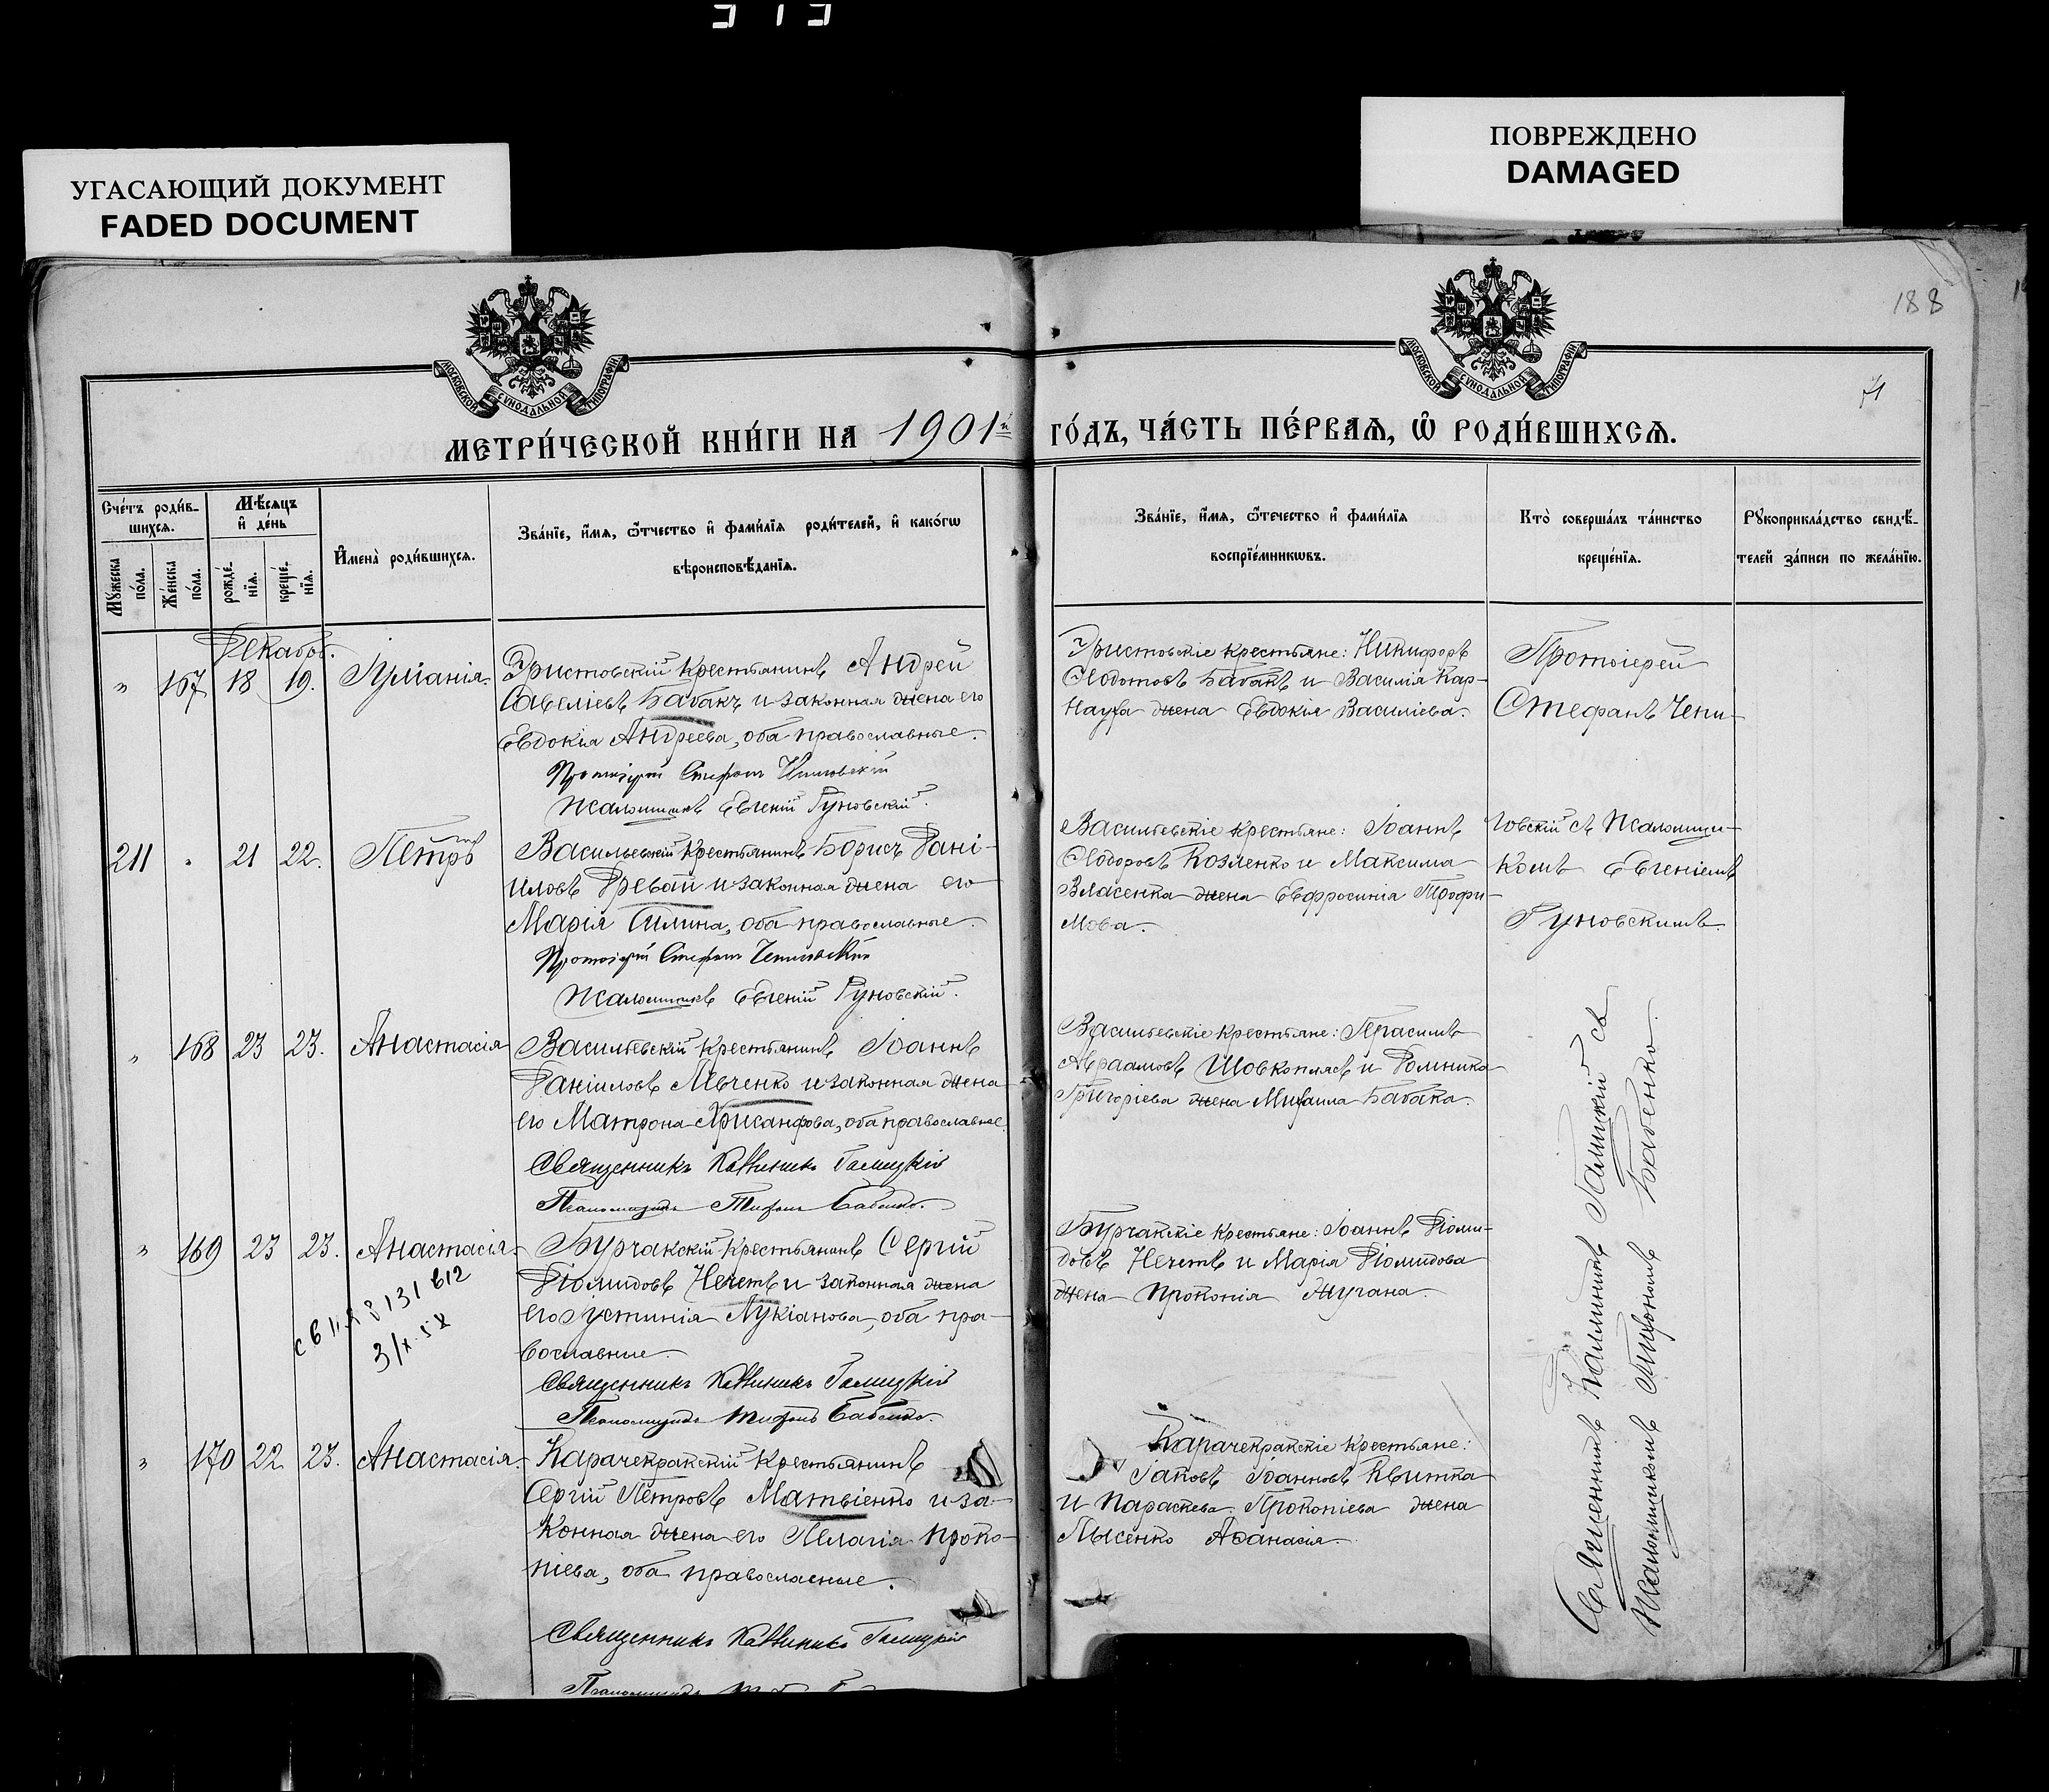 УГАСАЮЩИЙ ДОКУМЕНТ
FADED DOCUMENT
ПОВРЕЖДЕНО
DAMAGED
188
71
МОСКОВСКОЙ СУНОДАЛЬНОЙ ТИПОГРАФІИ
МОСКОВСКОЙ СУНОДАЛЬНОЙ ТИПОГРАФІИ
МЕТРИ́ЧЕСКОЙ КНИ́ГИ НА 1901й ГО́ДЪ, ЧА́СТЬ ПЕ́РВАѦ, Ѡ РОДИ́ВШИХСѦ.
Сче́тъ роди́в-
шихсѧ.
Мꙋжеска по́ла.
Же́нска по́ла.
Мѣ́сѧцъ
и҆ де́нь
рожде́-
нїѧ.
креще́-
нїѧ.
И҆мена̀ роди́вшихсѧ.
Зва́нїе, и҆́мѧ, ѻ҆́тчество и҆ фами́лїѧ роди́телей, и҆ како́гѡ
вѣроисповѣ́данїѧ.
Зва́нїе, и҆́мѧ, ѻ҆те́чество и҆ фами́лїѧ
воспрїе́мникѡвъ.
Кто̀ соверша́лъ та́инство
креще́нїѧ.
Рꙋкоприкла́дство свидѣ́-
телей за́писи по жела́нїю.
Декабр.
" 167 18 19. Іуліанія.
Эристовскій крестьянинъ Андрей
Савеліевъ Бабакъ и законная жена его
Евдокія Андреева, оба православные.
Протоіерей Стефанъ Чепиговскій
Псаломщикъ Евгеній Руновскій.
Эристовскіе крестьяне: Никифоръ
Ѳедотовъ Бабакъ и Василія Кар-
науха жена Евдокія Василіева.
Протоіерей
Стефанъ Чепи-
211 " 21 22. Петръ
Васильевскій крестьянинъ Борисъ Дані-
иловъ Гребай и законная жена его
Марія Силина, оба православные.
Протоіерей Стефанъ Чепиговскій
Псаломщикъ Евгеній Руновскій.
Васильевскіе крестьяне: Іоаннъ
Ѳеодоровъ Козленко и Максима
Власенка жена Евфросинія Трофи-
мова.
говскій съ псаломщи-
комъ Евгеніемъ
Руновскимъ.
" 168 23 23. Анастасія
Васильевскій крестьянинъ Іоаннъ
Даніиловъ Левченко и законная жена
его Матрона Хрисанфова, оба православные.
Священникъ Каллиникъ Галицкій
Псаломщикъ Тифонъ Бабенко.
Васильевскіе крестьяне: Герасимъ
Авраамовъ Шовкоплясъ и Домника
Григоріева жена Михаила Бабака.
" 169 23 23. Анастасія.
Бурчакскій крестьянинъ Сергій
Діомидовъ Нечетъ и законная жена
его Іустинія Лукіанова, оба пра-
вославные.
Священникъ Каллиникъ Галицкій
Псаломщикъ Тифонъ Бабенко.
Бурчакскіе крестьяне: Іоаннъ Діоми-
довъ Нечетъ и Марія Діомидова
жена Прокопія Жугана.
3/X-58
" 170 22 23. Анастасія.
Карачекракскій крестьянинъ
Сергій Петровъ Матвіенко и за-
конная жена его Пелагія Проко-
піева, оба православные.
Священникъ Каллиникъ Галицкій
Карачекракскіе крестьяне:
Іаковъ Іоанновъ Квитка
и Параскева Прокопіева жена
Лысенко Аѳанасія.
Священникъ Каллиникъ Галицкій съ
Псаломщикомъ Тифономъ Бабенко.